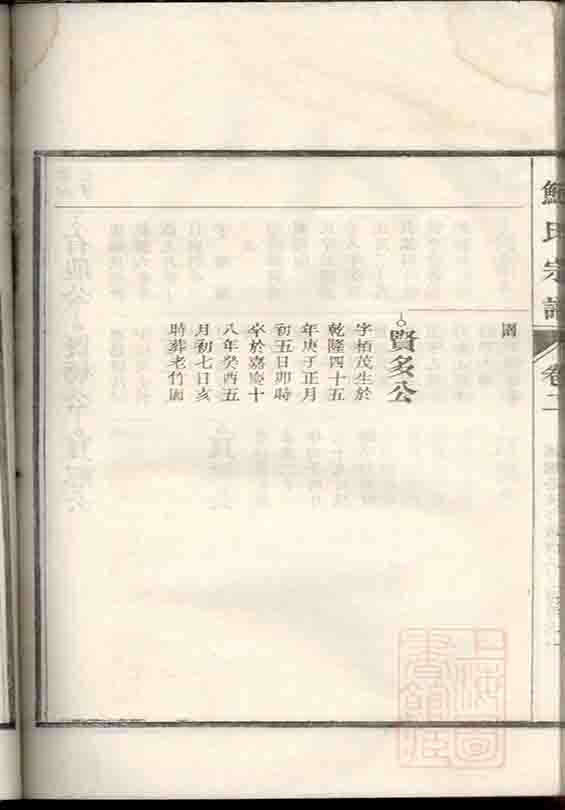 鮑氏宗譜
卷二
園
賢多公
字柏茂生於
乾隆四十五
年庚子正月
初五日卯時
卒於嘉慶十
八年癸酉五
月初七日亥
時葬老竹園
上海圖
書館藏